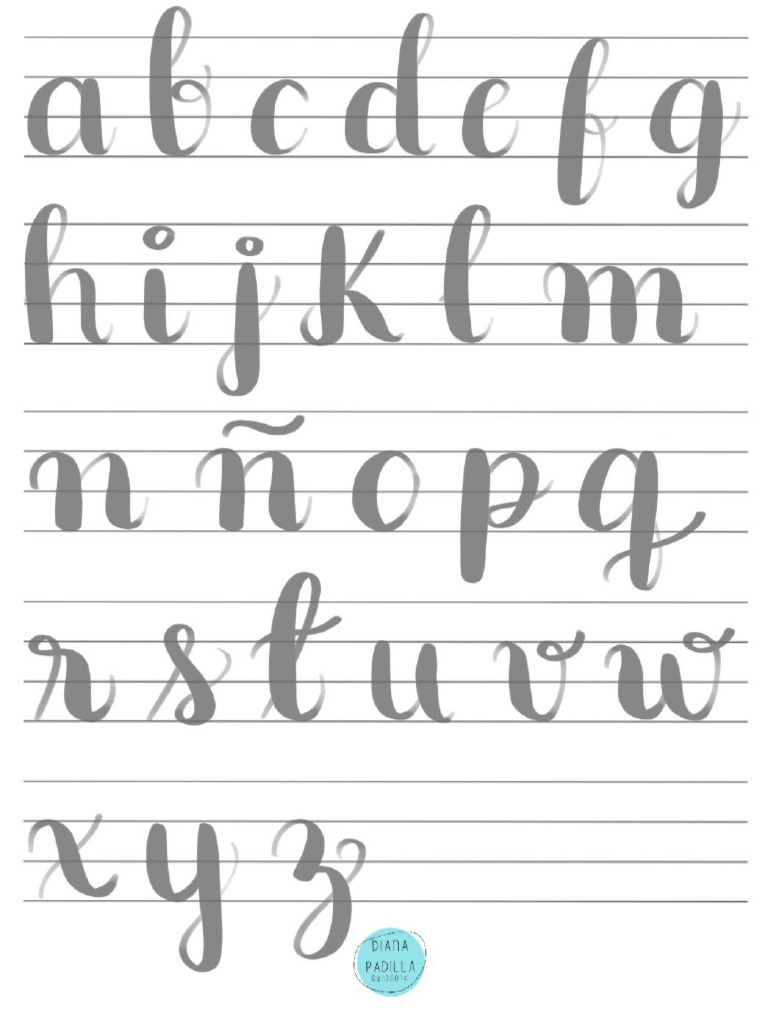 a b c d e f g
h i j k l m
n ñ o p q
r s t u v w
x y z
DIANA
PADILLA